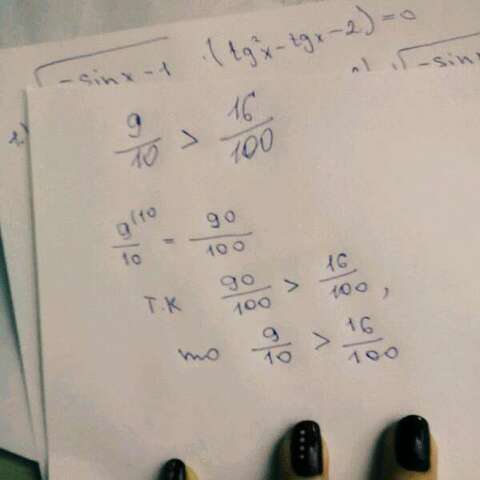 √(-sinx-1) · (tg²x-tgx-2)=0
2)
√(-sinx
9/10 > 16/100
9^(10/10 = 90/100
Т.К 90/100 > 16/100,
то 9/10 > 16/100